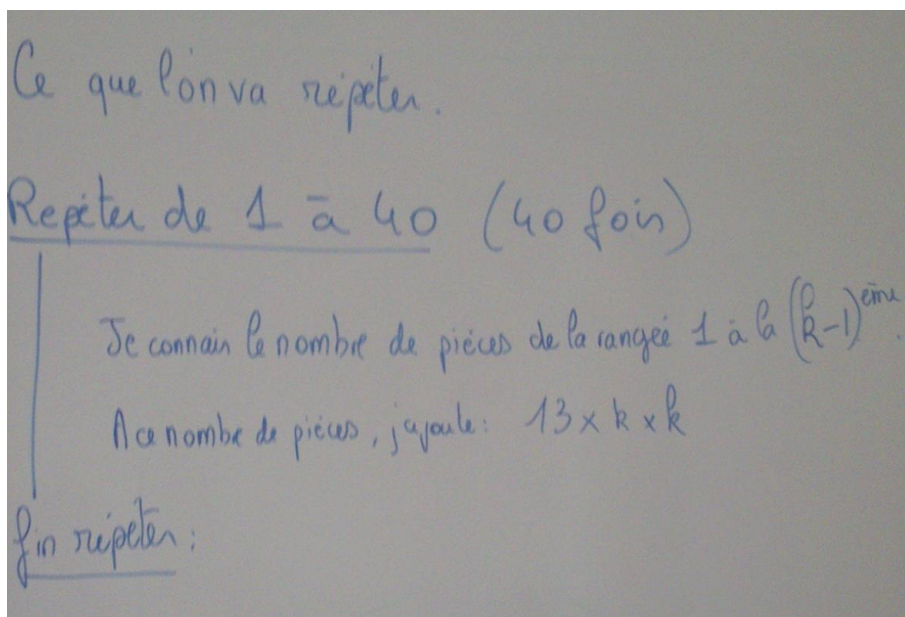 Ce que l'on va répéter.
Repéter de 1 à 40 (40 fois)
Je connais le nombre de pièces de la rangée 1 à la (k-1)ème.
A ce nombre de pièces, j'ajoute: 13 x k x k
fin répéter: